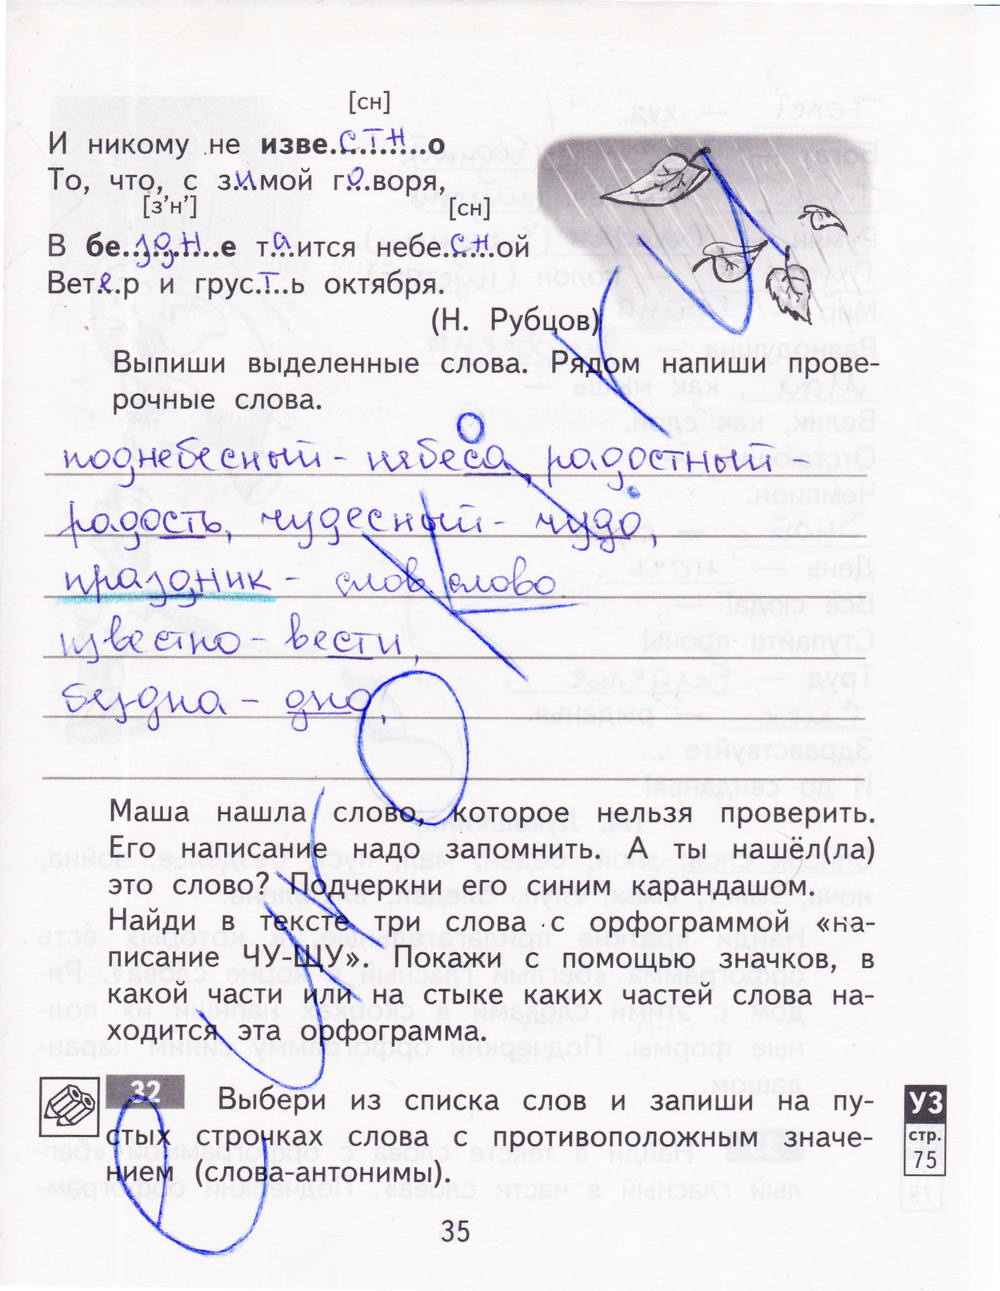 [сн]
И никому не изве..стн..о
То, что, с зимой г.о.воря,
[з’н’] [сн]
В бе..здн..е таится небе.сн.ой
Вет.е.р и грус.т.ь октября.
(Н. Рубцов)
Выпиши выделенные слова. Рядом напиши прове-
рочные слова.
поднебесный - небеса, радостный -
радость, чудесный - чудо,
праздник - слов слово
известно - вести,
бездна - дно.
Маша нашла слово, которое нельзя проверить.
Его написание надо запомнить. А ты нашёл(ла)
это слово? Подчеркни его синим карандашом.
Найди в тексте три слова с орфограммой «на-
писание ЧУ-ЩУ». Покажи с помощью значков, в
какой части или на стыке каких частей слова на-
ходится эта орфограмма.
32 Выбери из списка слов и запиши на пу-
стых строчках слова с противоположным значе-
нием (слова-антонимы).
УЗ
стр.
75
35